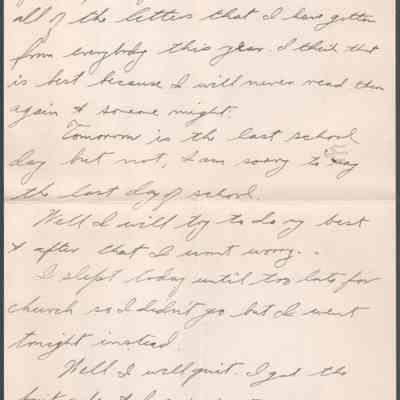 all of the letters that I have gotten
from everybody this year. I think that
is best because I will never read them
again & someone might.
Tomorrow is the last school
day but not, I am sorry to say
the last day of school.
Well I will try to do my best
& after that I wont worry..
I slept today until too late for
church so I didn't go but I went
tonight instead.
Well I will quit. I got the